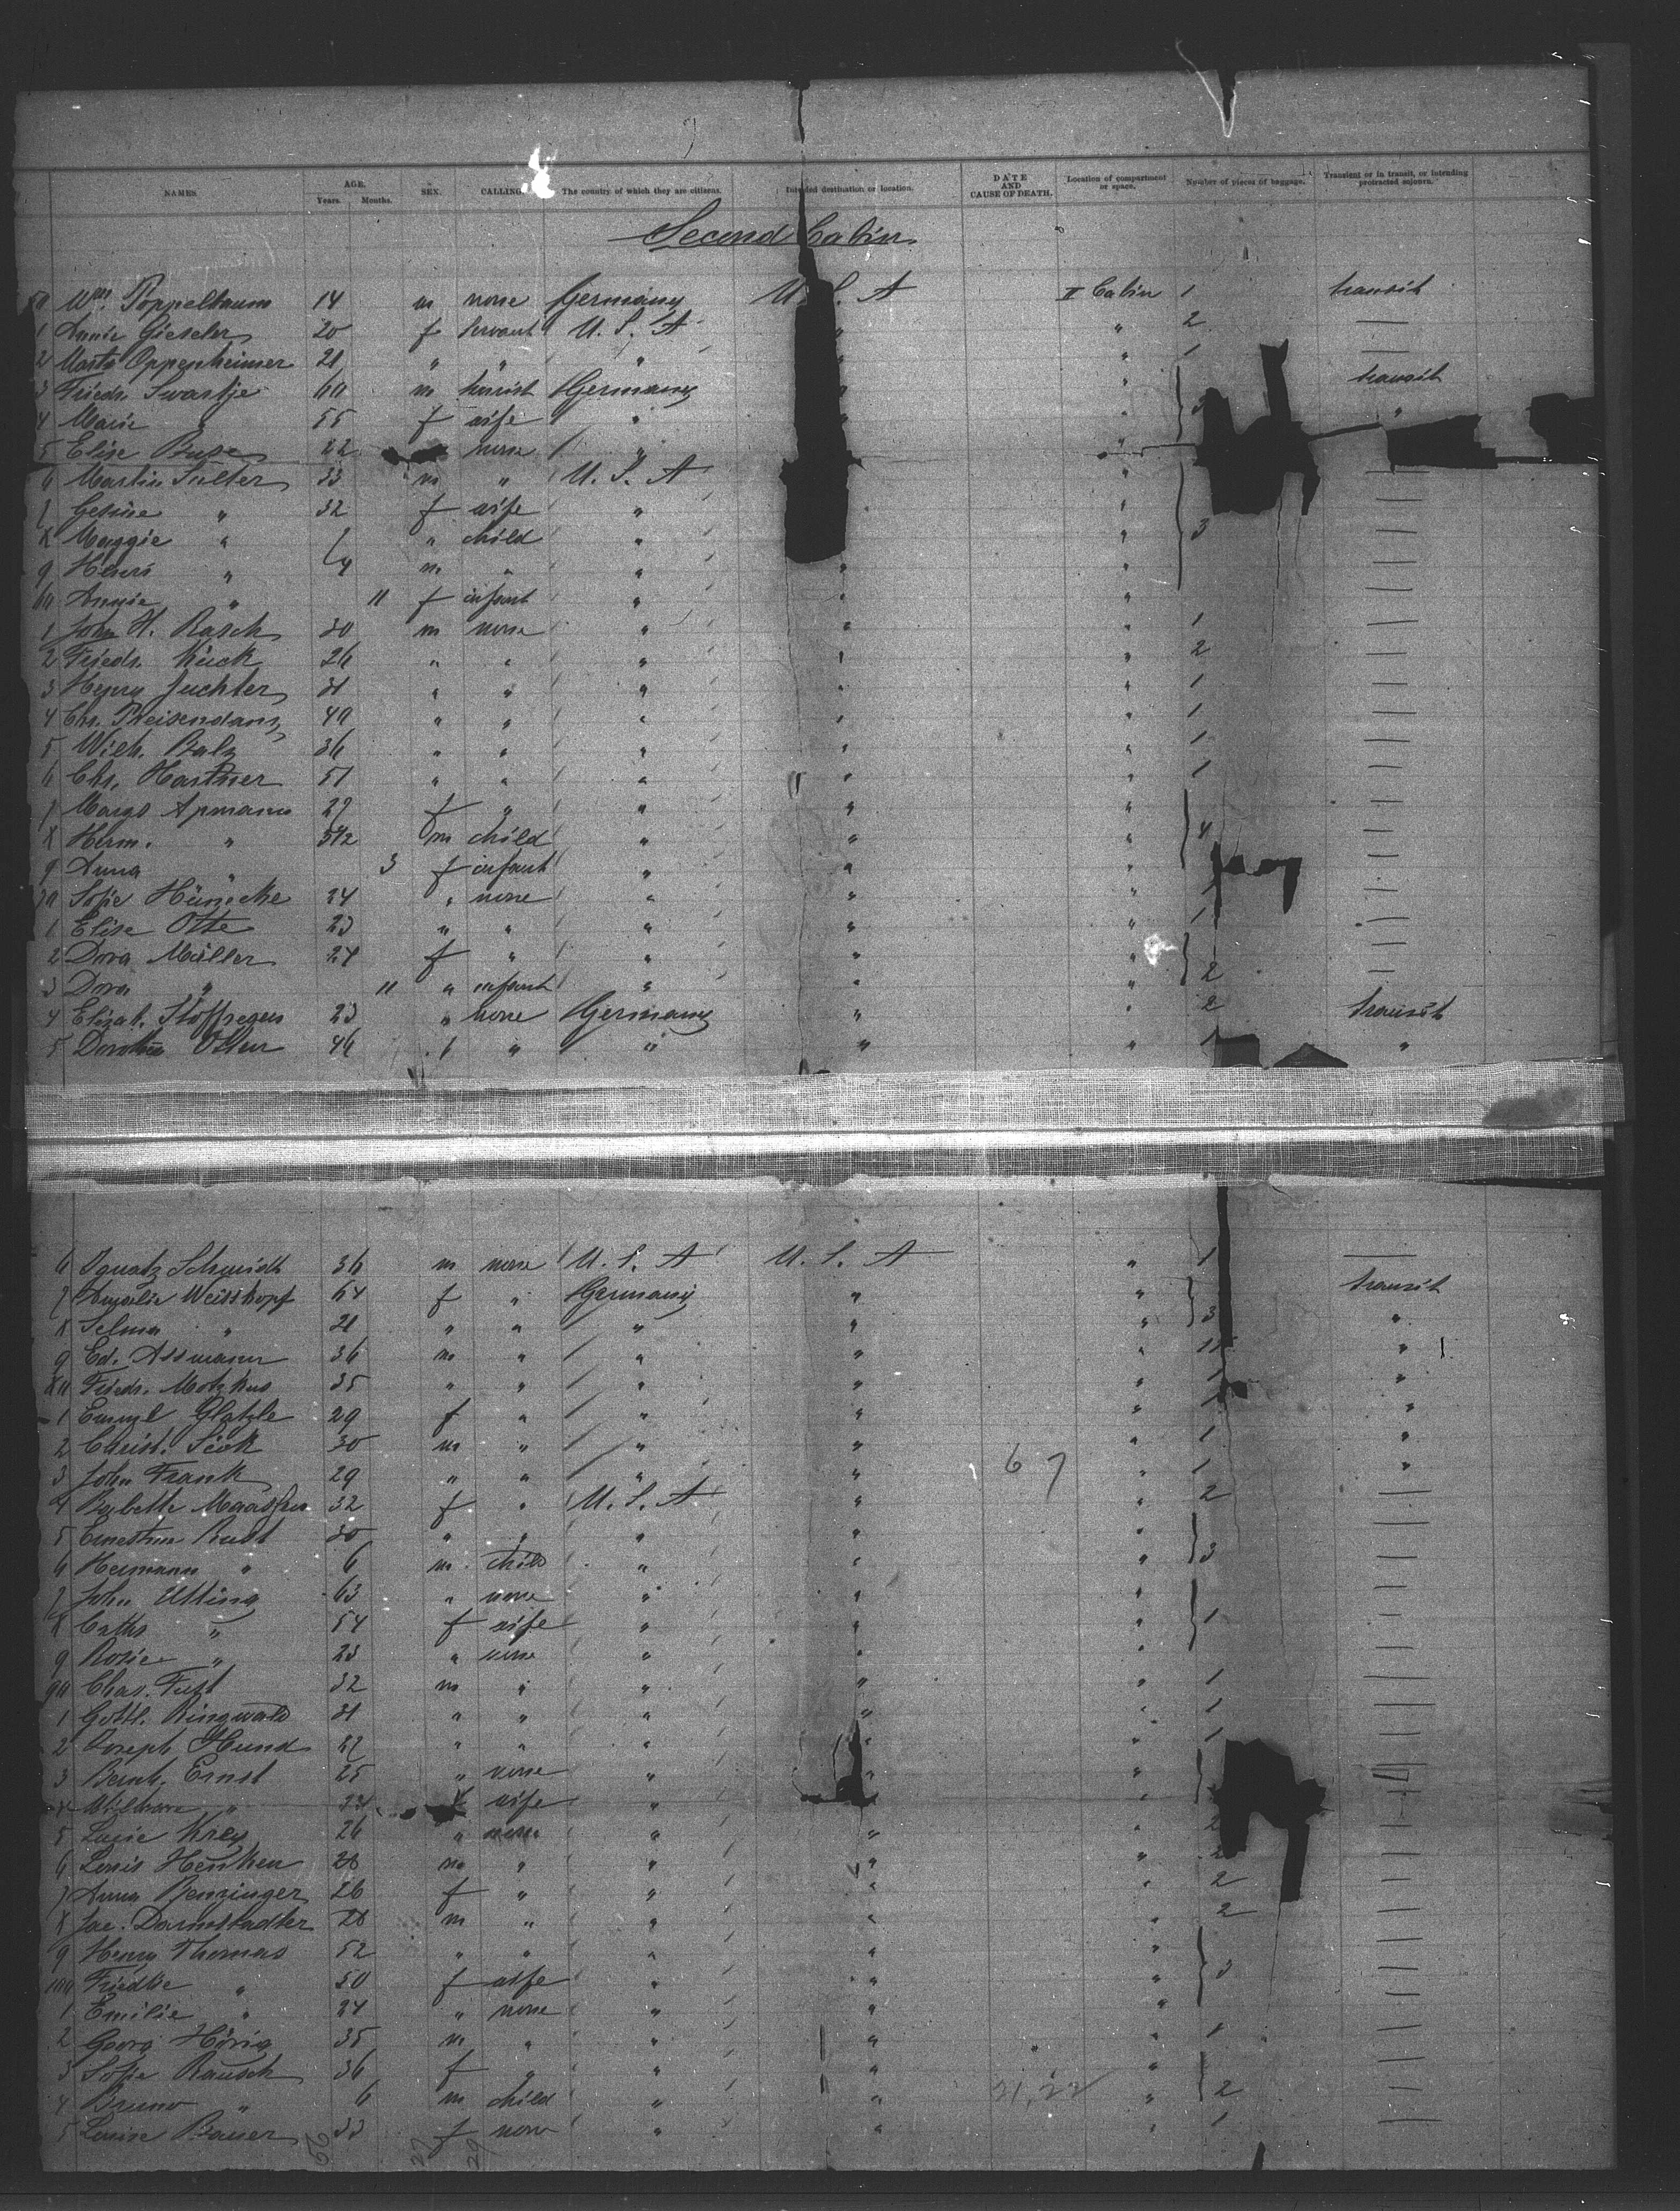 NAMES AGE. Years. Months. SEX. CALLING The country of which they are citizens. Intended destination or location. DATE AND CAUSE OF DEATH. Location of compartment or space. Number of pieces of baggage. Transient or in transit, or intending protracted sojourn.
Second Cabin
Wm. Poppelbaum 14 m none Germany U. S. A II Cabin 1 transit
1 Annie Gieseler 20 f servant U. S. A " " 2 —
2 Oppenheimer 21 " " " " " 1 —
3 Friedr. Swartje 60 m Germany " " transit
4 Marie " 55 f wife " " " "
5 Elise Buse 22 none " "
6 Martin Sulter 33 m " U. S. A " —
7 Gesine " 32 f wife " " " —
8 Maggie " 7 " child " " " 3 —
9 Henri " 4 m " " " " —
60 Annie " 11 f infant " " " —
1 John H. Rasch 30 m none " " " 1 —
2 Friedr. Kück 26 " " " " " 2 —
3 Henry Juchter 31 " " " " " 1 —
4 Chr. Preisendanz 40 " " " " " 1 —
5 Wilh. Balz 36 " " " " " 1 —
6 Chr. Harttner 51 " " " " " 1 —
7 Margo Apmann 27 f " " " " —
8 Herm. " 3 1/2 m child " " " 4 —
9 Anna " 3 f infant " " " —
70 Sofie Hünecke 24 " none " " " —
1 Elise Otte 23 " " " " " 1 —
2 Dora Müller 24 f " " " " —
3 Dora " 11 " infant " " 2 —
4 Elizab. Stoffregen 23 " none Germany " " 2 transit
5 Dorothea 46 f " " " " 1 "
6 Ignatz Schmidt 36 m none U. S. A U. S. A " 1 —
7 Amalie Weisskopf 64 f " Germany " " transit
8 Selma " 21 " " " " " 3 "
9 Ed. Assmann 36 m " " " " "
80 Friedr. Motzkus 35 " " " " " 1 "
1 Glatzle 29 f " " " " 1 "
2 Christ. 30 m " " " " 1 "
3 John Frank 29 " " " " 6 7 " 1 "
4 Babette 32 f " U. S. A " " 2 —
5 Ernestine Rust 30 " " " " " —
6 Hermann " 6 m child " " " 3 —
7 John Utting 63 " none " " " —
8 Caths " 54 f wife " " " 1 —
9 Rosie " 23 " none " " " —
90 Chas. Fust 32 m " " " " 1 —
1 Gottl. Ringwald 31 " " " " " 1 —
2 Joseph Hund 27 " " " " " 1 —
3 Bernh. Ernst 25 " none " " " —
" wife " " " —
5 Lucie Krey 26 " none " " " 2 —
6 Louis Henken 28 m " " " " 2 —
7 Anna Benzinger 26 f " " " " 2 —
8 Jac. Darmstadter 28 m " " " " 2 —
9 Henry Thomas 52 " " " " " —
100 Friedke " 50 f wife " " " 3 —
1 Emilie " 24 " none " " " —
2 Georg Hörig 35 m " " " " 1 —
3 Sofie Rausch 36 f " " " " —
4 Bruno " 6 m child " " 21,22 " 2 —
5 Louise Bauer 33 f none " " " 1 —
56 27 29